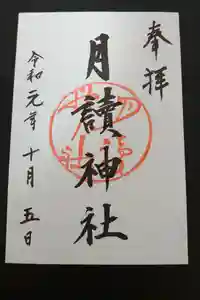 奉拝
月讀神社
令和元年十月五日